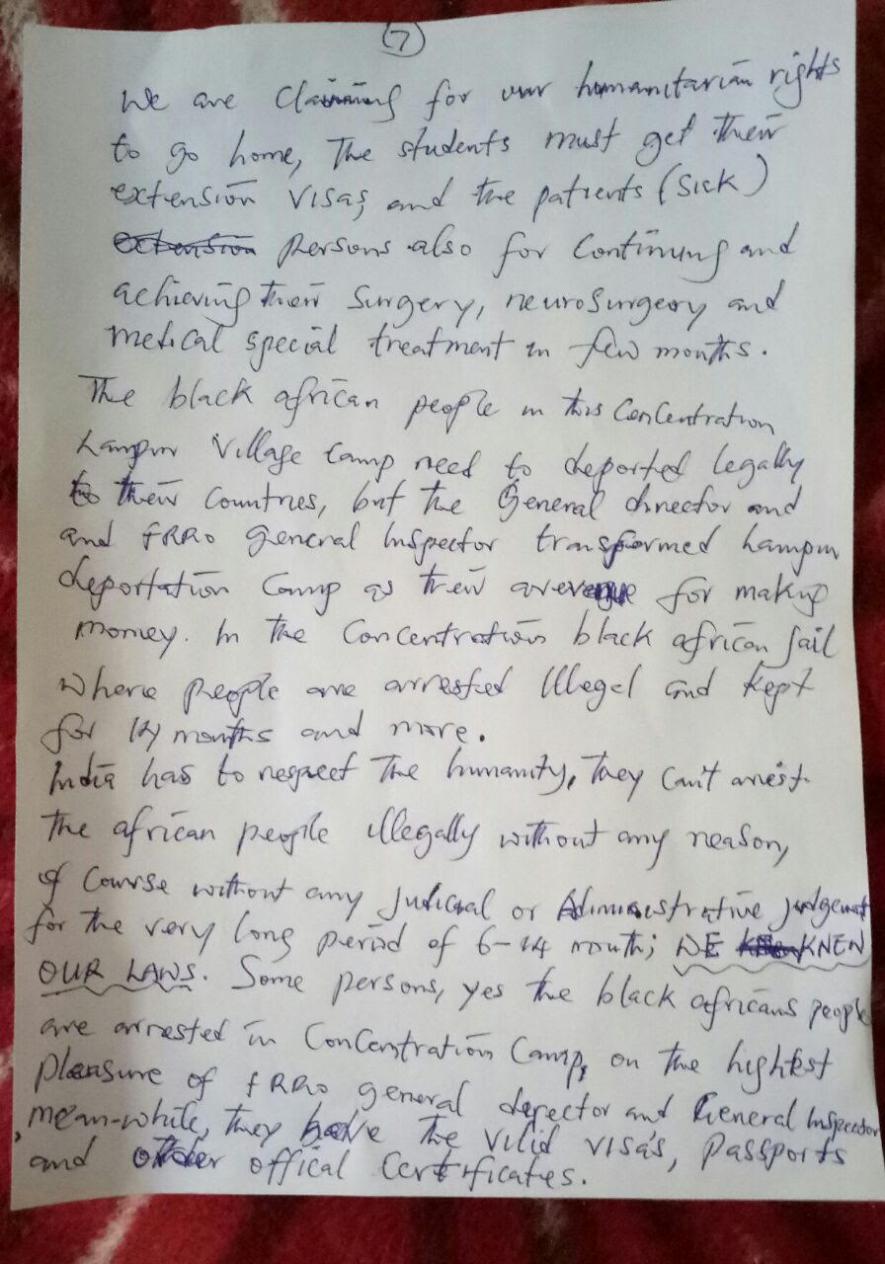 7
We are claiming for our humanitarian rights
to go home, The students must get their
extension visas, and the patients (sick)
extension persons also for continung and
achieving their surgery, neurosurgeory and
medical special treatment in few months.
The black african people in this concentration
Lampur Village Camp need to deported legally
to their countries, but the General director and
and FRRO general Inspector transformed Lampur
deportation Camp as their avenue for making
money. In the Concentration black african Jail
where people are arrested Illegel and kept
for 14 months and more.
India has to respect The humanity, they can't arrest
the african people illegally without any reason,
of course without any Judicial or Administrative judgement
for the very long period of 6-14 month; WE KNEW
OUR LAWS. Some persons, yes the black africans people
are arrested in Concentration Camp, on the highest
pleasure of FRRO general derector and General Inspector
, mean-while, they have the vilid visa's, passports
and other offical certificates.